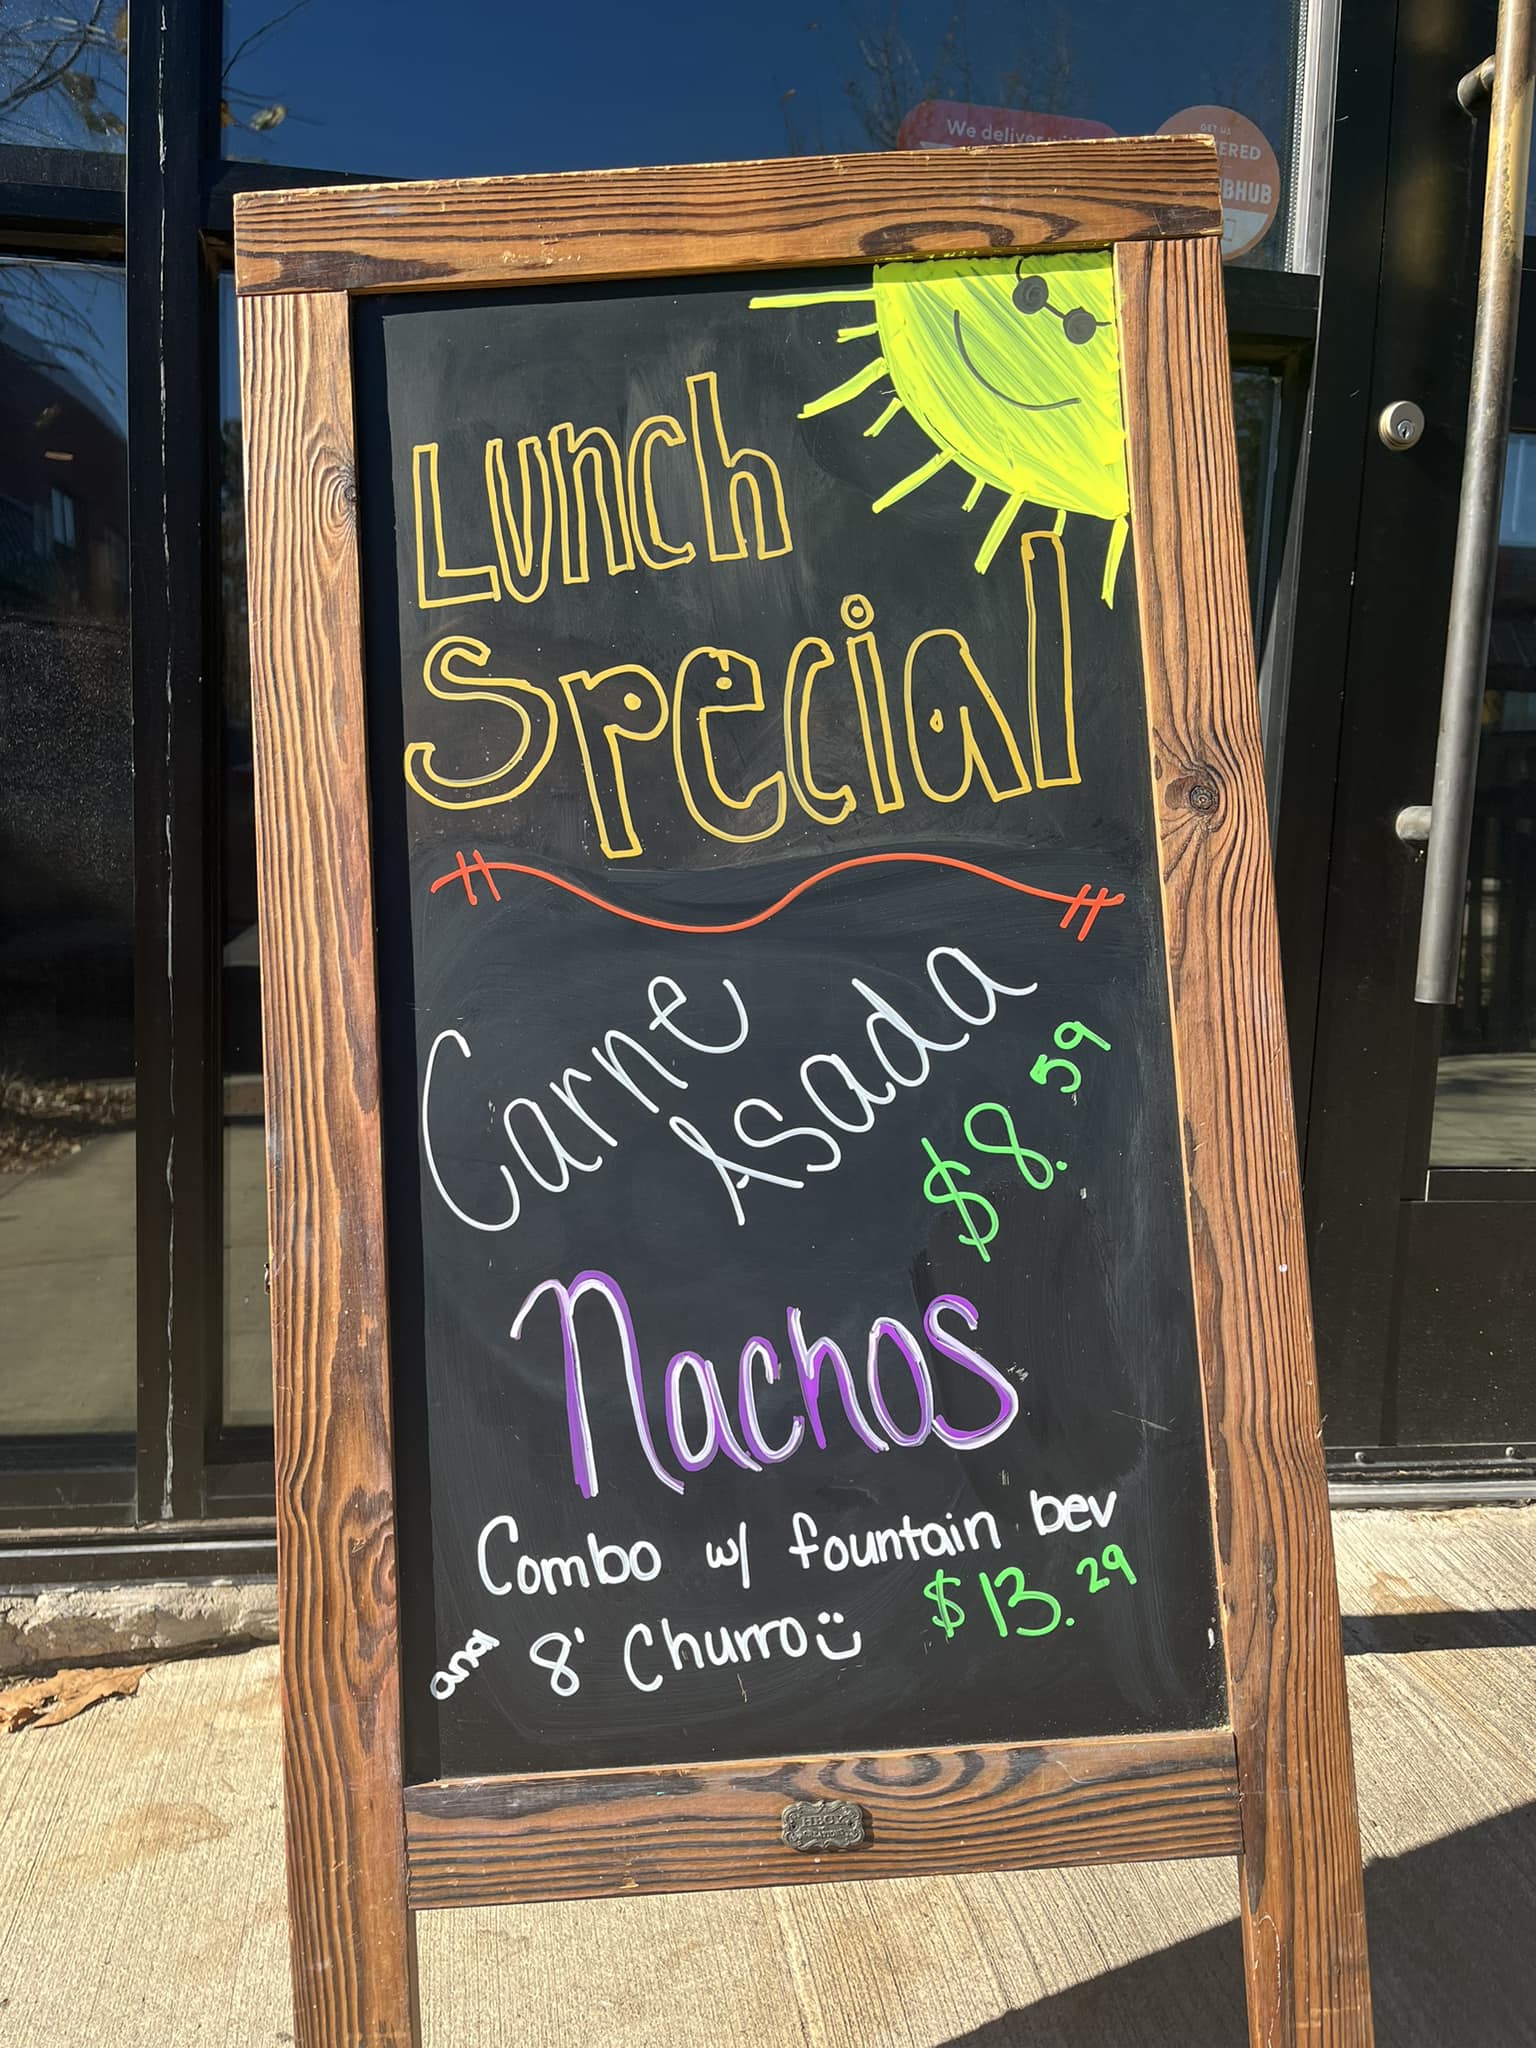 We deliver
GET
ERED
BHUB
Lunch
Special
Carne
Asada
$8.59
Nachos
Combo w/ fountain bev
and 8' Churro $13.29
HEGY
CREATIONS